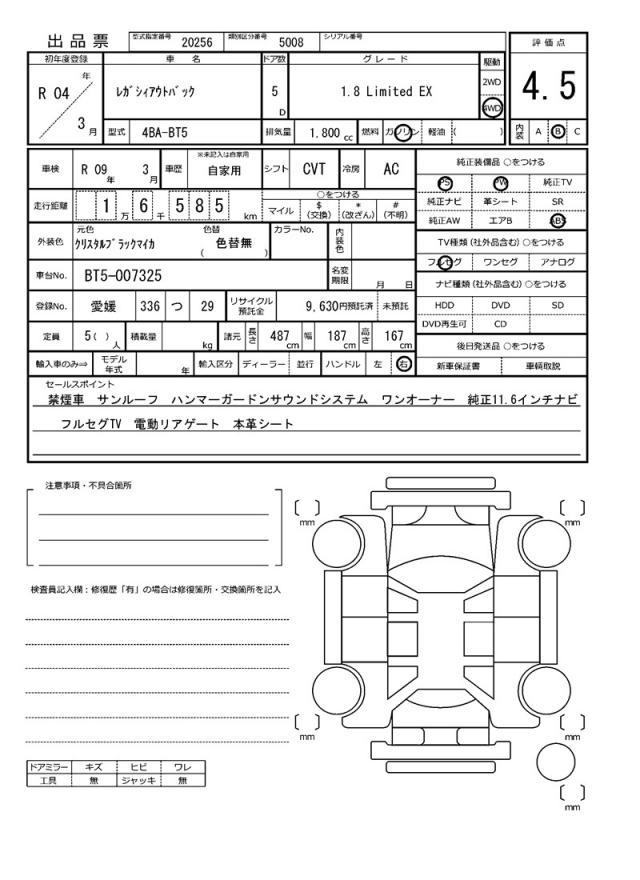 出品票 型式指定番号 20256 類別区分番号 5008 シリアル番号
評価点
初年度登録 車名 ドア数 グレード 駆動
R 04 年 レガシィアウトバック 5 D 1.8 Limited EX 2WD 4WD 4.5
3 月 型式 4BA-BT5 排気量 1.800 cc 燃料 ガソリン 軽油 ( ) 内装 A B C
車検 R 09 年 3 月 車歴 ※未記入は自家用 自家用 シフト CVT 冷房 AC
純正装備品 ○をつける
PS PW 純正TV
走行距離 1 万 6 千 5 8 5 km
○をつける
マイル $ (交換) * (改ざん) # (不明)
純正ナビ 革シート SR
純正AW エアB ABS
外装色 元色 クリスタルブラックマイカ 色替 ( 色替無 ) カラーNo. 内装色
TV種類 (社外品含む) ○をつける
フルセグ ワンセグ アナログ
車台No. BT5-007325 名変期限 月 日
ナビ種類 (社外品含む) ○をつける
登録No. 愛媛 336 つ 29 リサイクル預託金 9,630円預託済 未預託
HDD DVD SD
DVD再生可 CD
定員 5( ) 人 積載量 kg 諸元 長さ 487 cm 幅 187 cm 高さ 167 cm
後日発送品 ○をつける
輸入車のみ⇒ モデル年式 年 輸入区分 ディーラー 並行 ハンドル 左 右
新車保証書 車輌取説
セールスポイント
禁煙車 サンルーフ ハンマーガードンサウンドシステム ワンオーナー 純正11.6インチナビ
フルセグTV 電動リアゲート 本革シート
注意事項・不具合箇所
mm
mm
検査員記入欄：修復歴「有」の場合は修復箇所・交換箇所を記入
mm
mm
ドアミラー キズ ヒビ ワレ
工具 無 ジャッキ 無
mm